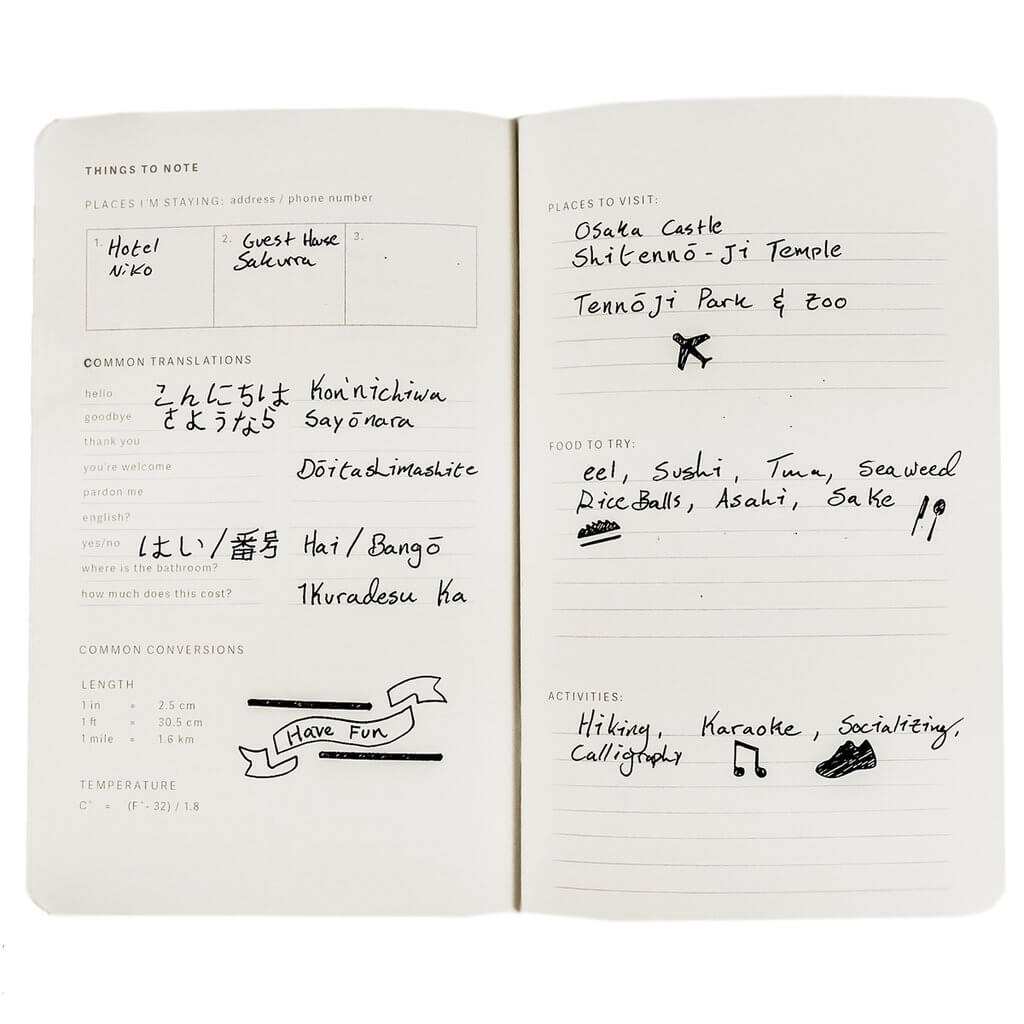 THINGS TO NOTE
PLACES I'M STAYING: address / phone number
1. Hotel
Niko
2. Guest House
Sakurra
3.
COMMON TRANSLATIONS
hello こんにちは Kon'nichiwa
goodbye さようなら Sayōnara
thank you
you're welcome Dōitashimashite
pardon me
english?
yes/no はい/番号 Hai/Bangō
where is the bathroom?
how much does this cost? Ikuradesu Ka
COMMON CONVERSIONS
LENGTH
1 in = 2.5 cm
1 ft = 30.5 cm
1 mile = 1.6 km
Have Fun
TEMPERATURE
C° = (F°- 32) / 1.8
PLACES TO VISIT:
Osaka Castle
Shitennō-Ji Temple
Tennōji Park & Zoo
FOOD TO TRY:
eel, Sushi, Tuna, Seaweed
Rice Balls, Asahi, Sake
ACTIVITIES:
Hiking, Karaoke, Socializing,
Calligraphy